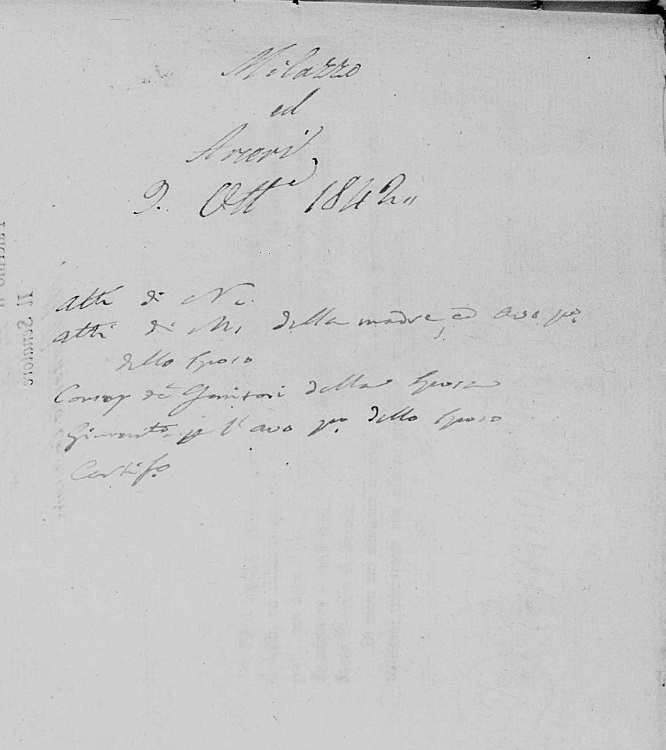 Milazzo
ed
Arceri
9. Ott.e 1842
Atti di N.
Atti di M. della madre, ed avo p.o
dello Sposo
Consen de' Genitori della Sposa
Giuramto p l'avo p.o dello Sposo
Certif.o
Il Senatore